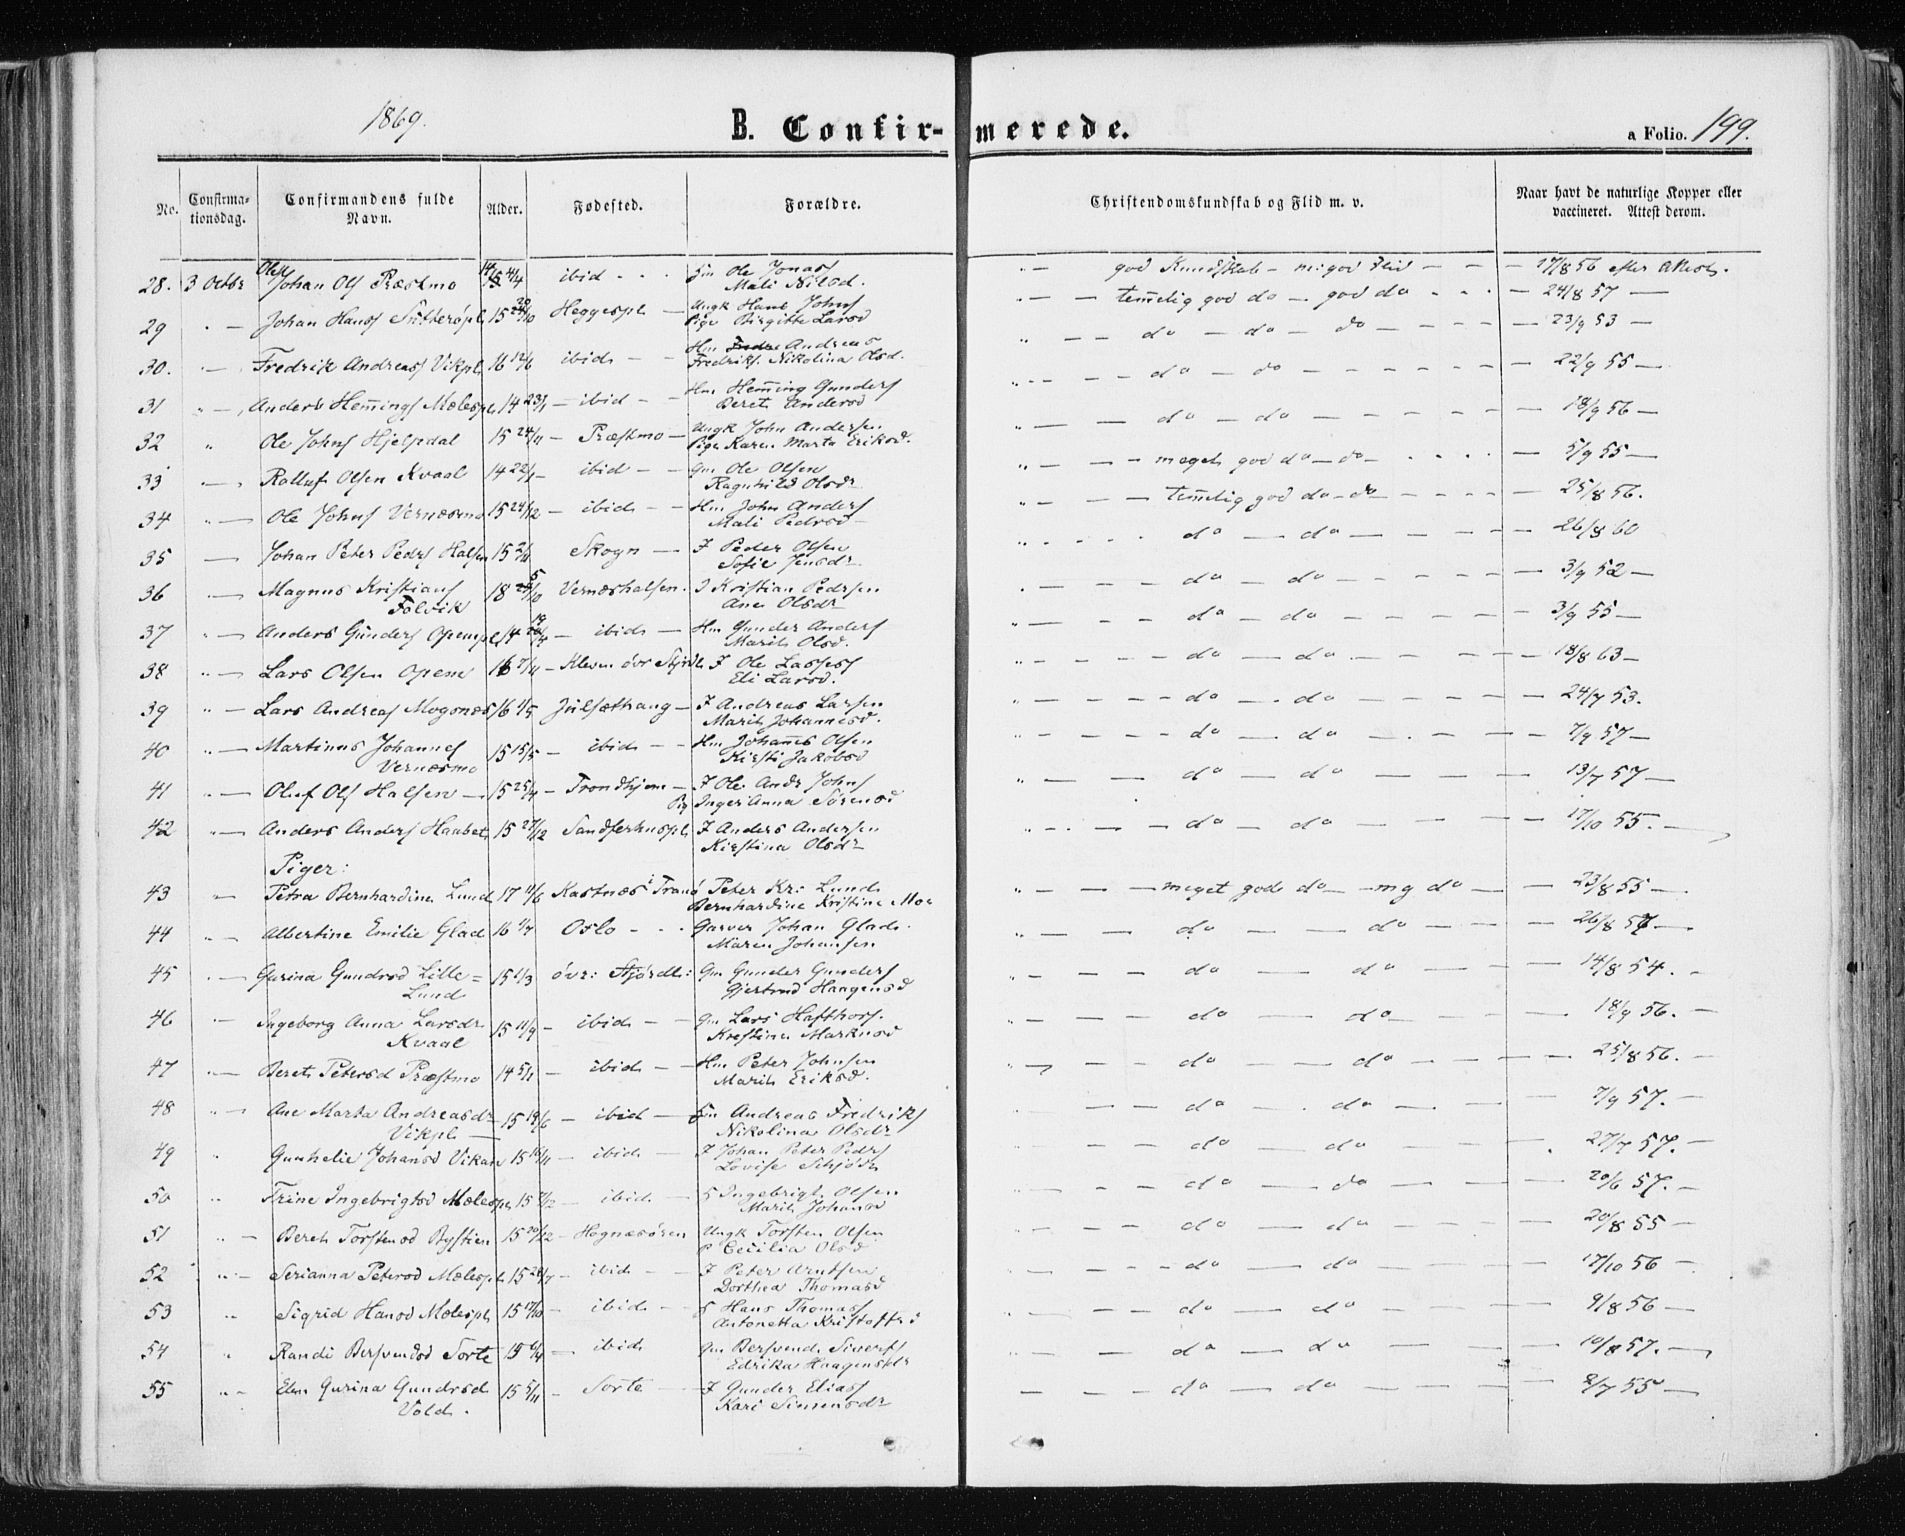 1869.
B. Confir- merede.
a Folio. 199.
No. Confirma- tionsdag. Confirmandens fulde Navn. Alder. Fødested. Forældre. Christendomskundskab og Flid m. v. Naar havt de naturlige Kopper eller vaccineret. Attest derom.
28. 3 Octbr Johan Ols Præstmo ibid Ole Jonas god Kundskab - m: god Flid 17/8 56 efter Attest.
Mali Nilsd.
29 " Johan Hans Sutterøpl 15 Heggespl Ungk Hans Johns temelig god do - god do 24/8 57
Pige Birgitte Larsd
30. " Fredrik Andreas Vikpl 16 12/6 ibid Hm Andreas do - do - do 23/9 53
Fredriks. Nikolina Olsd.
31 " Anders Heming Mælespl 14 23/1 ibid Hm Heming Gunders do - do 22/9 55
Beret Andersd
32 " Ole Johns Hjelpdal 15 24/11 Præstmo Ungk John Andersen do - do 18/9 56
Pige Karen Marta Eriksd.
33 " Rolluf Olsen Kvaal 14 22/1 ibid Gm Ole Olsen meget god do - do 5/9 55
Ragnhild Olsdr
34 " Ole Johns Vernæsmo 15 24/12 ibid Hm John Anders temelig god do - do 25/8 56.
Mali Pedrsd
35 Johan Peter Pedrs Halsen 15 2/11 Skogn I Peder Olsen do - do 26/8 60
Sofie Jensdr
36 Magnus Kristians 18 Vernæshalsen. I Kristian Pedrsen do - do 3/9 52
Folvik Ane Olsdr
37 " Anders Gunders Openspl 14 ibid Hm Gunder Anders do - do 3/9 55
Marit Olsd.
38 " Lars Olsen Opem 16 7/11 Kleven øvr Stjrdl I Ole Lasses do - do 18/8 63
Eli Larsd.
39 " Lars Andreas Mogsnæs 16 4/5 Julsæthaug I Andreas Larsen do - do 24/7 53.
Marit Johannesd.
40 " Martinus Johannes 15 15/5 ibid Hm Johannes Olsen do - do 7/9 57
Vernæsmo Kirsti Jakobsd
41 " Oluf Ols Halsen 15 25/4 Trondhjem I Ole Andr Johns do - do 13/7 57
Pig Inger Anna Sørensd
42 " Anders Anders Haabet 15 27/12 Sandferhuspl I Anders Andersen do - do 17/10 55.
Kirstina Olsdr
Piger:
43 " Petra Bernhardine Lund 17 11/6 Kastnæs i Tranø Peter Kr: Lund meget god do - mg do 23/8 55
Bernhardine Kristine Moe
44 " Albertine Emilie Glad 16 1/7 Oslo Garver Johan Glad. do do 26/8 57
Maren Johansen
45 " Gurina Gundrsd Lille= 15 1/3 øvr: Stjørdl: Gm Gunder Gunders do do 14/8 54.
Lund Gjertrud Haagensd
46 " Ingeborg Anna Larsdr 15 11/9 ibid Gm Lars Hafthors. do do 18/9 56.
Kvaal Kristine Marknsd
47 " Beret Petersd Præstmo 14 5/1 ibid Hm Peter Johnsen do do 25/8 56.
Marit Eriksd.
48 " Ane Marta Andreasdr 15 19/6 ibid Andreas Fredriks do do 7/9 57.
Vikpl Nikolina Olsdr
49 " Gunhelie Johansd Vikan 15 16/11 ibid I Johan Peter Pedrs do do 27/7 57.
Lovise Schjødt
50 " Trine Ingebrigtsd Mælespl 15 ibid Ingebrigt Olsen do do 20/6 57.
Marit Johansd
51 " Beret Torstensd Rystien 15 20/12 Hognæsøren Ungk Torsten Olsen do do 20/8 55
P Cecilia Olsd
52 " Serianna Petersd Mælespl 15 28/7 ibid I Peter Arntsen do do 17/10 56
Dorthea Thomasd
53 " Sigrid Hansd Mælespl 15 17/10 ibid Hans Thomas do do 9/8 56
Antonetta Kristoffrd
54 " Randi Bersvendsd Sorte 15 6/4 ibid Gm Bersvend Siverts do do 10/8 57.
Edrika Haagensdr
55 " Elen Gurina Gundrsd 15 5/11 Sorte I Gunder Elias do do 8/7 55
Vold. Kari Simensdr